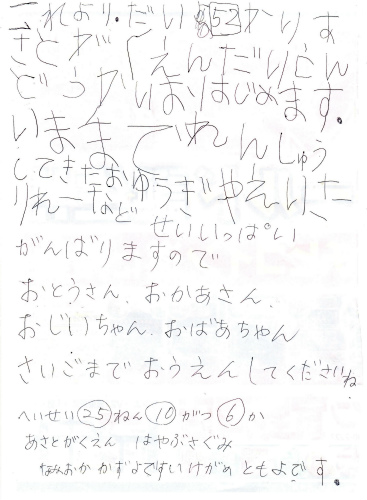 これより.だい52かいあ
さとがくえんだいうん
どうかいはりはじめます.
いままでれんしゅう
してきたおゆうぎやえいた
りれーなど
せいいっぱい
がんばりますので
おとうさん.おかあさん.
おじいちゃん.おばあちゃん
さいごまでおうえんしてくださいね
へいせい25ねん10がつ6か
あさとがくえん はやぶさぐみ
ともよです.